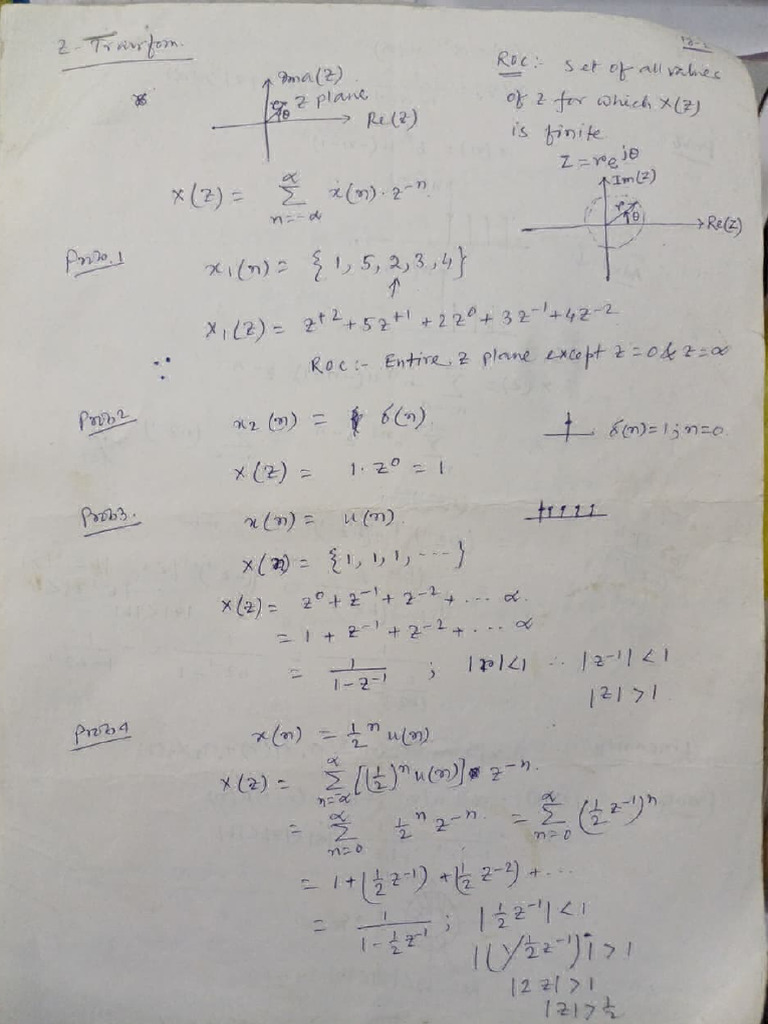 Z-Transfom.
Ima(Z)
r Z plane
θ
Re(Z)
ROC:- Set of all values
of z for which X(Z)
is finite
Z = re^jθ
Im(Z)
r
θ
Re(Z)
X(Z) = ∑ x(n).z^-n
n=-∞
∞
Prob.1
x₁(n) = {1, 5, 2, 3, 4}
↑
X₁(Z) = z^+2 + 5z^+1 + 2z^0 + 3z^-1 + 4z^-2
∴ ROC:- Entire z plane except z=0 & z=∞
Prob2
x₂(n) = δ(n)
δ(n)=1; n=0
X(Z) = 1. z^0 = 1
Prob3.
x(n) = u(n)
x(n) = {1, 1, 1, ---}
X(Z) = z^0 + z^-1 + z^-2 + ... ∞
= 1 + z^-1 + z^-2 + ... ∞
= 1/(1-z^-1) ; |r|<1 ∴ |z^-1| < 1
|z| > 1
Prob4
x(n) = 1/2^n u(n)
X(Z) = ∑_{n=-∞}^{∞} [(1/2)^n u(n)] z^-n.
= ∑_{n=0}^{∞} 1/2^n z^-n = ∑_{n=0}^{∞} (1/2 z^-1)^n
= 1 + (1/2 z^-1) + (1/2 z^-2) + ...
= 1/(1 - 1/2 z^-1) ; |1/2 z^-1| < 1
|(1/1/2 z^-1)| > 1
|2z| > 1
|z| > 1/2